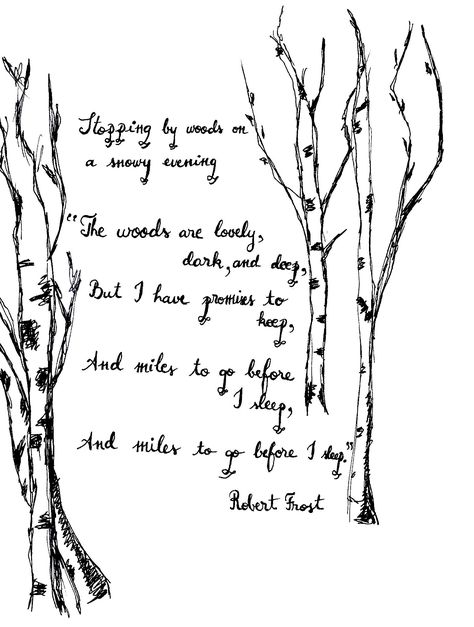 Stopping by woods on
a snowy evening
"The woods are lovely,
dark, and deep,
But I have promises to
keep,
And miles to go before
I sleep,
And miles to go before I sleep."
Robert Frost